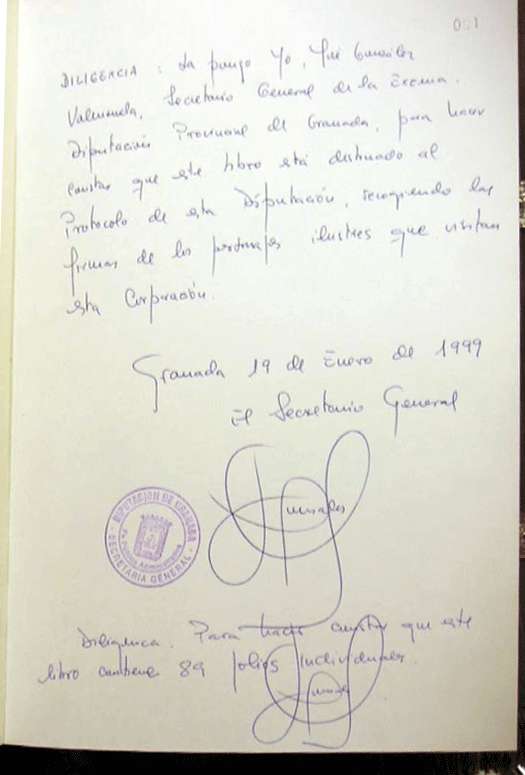 001
DILIGENCIA: La pongo Yo, José González
Valenzuela, Secretario General de la Excma.
Diputación Provincial de Granada, para hacer
constar que este libro está destinado al
Protocolo de esta Diputación, recogiendo las
firmas de los personajes ilustres que visitan
esta Corporación.
Granada 19 de Enero de 1999
El Secretario General
DIPUTACION DE GRANADA
SECRETARIA GENERAL
Diligencia. Para hacer constar que este
libro contiene 89 folios individuales.